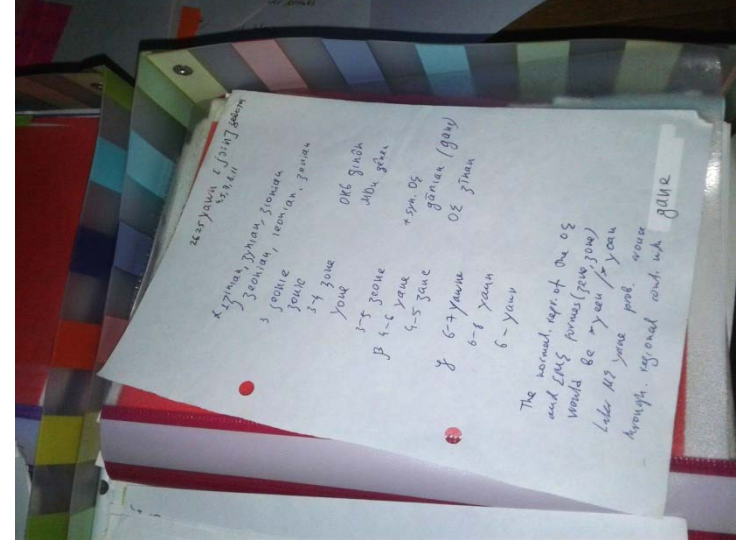 2625 yawn
4, 5, 7, 8, 11
α 1 ʒinian, ʒynian, ʒionian
ʒeonian,
3 ʒeonie
ʒonie
3-4 ʒone
yone
OHG ginôn
MDu gênen
3-5 ʒeone
β 4-6 yane
4-5 ʒane
+ syn. OE
gānian (gane)
OE ʒīnan
γ 6-7 yawne
6-8 yaun
6- yawn
The normal. repr. of the OE
and EME formes (ʒene, ʒone)
would be * yeen / * yoan
Later ME yane prob. arose
through. regional cont. wh gane